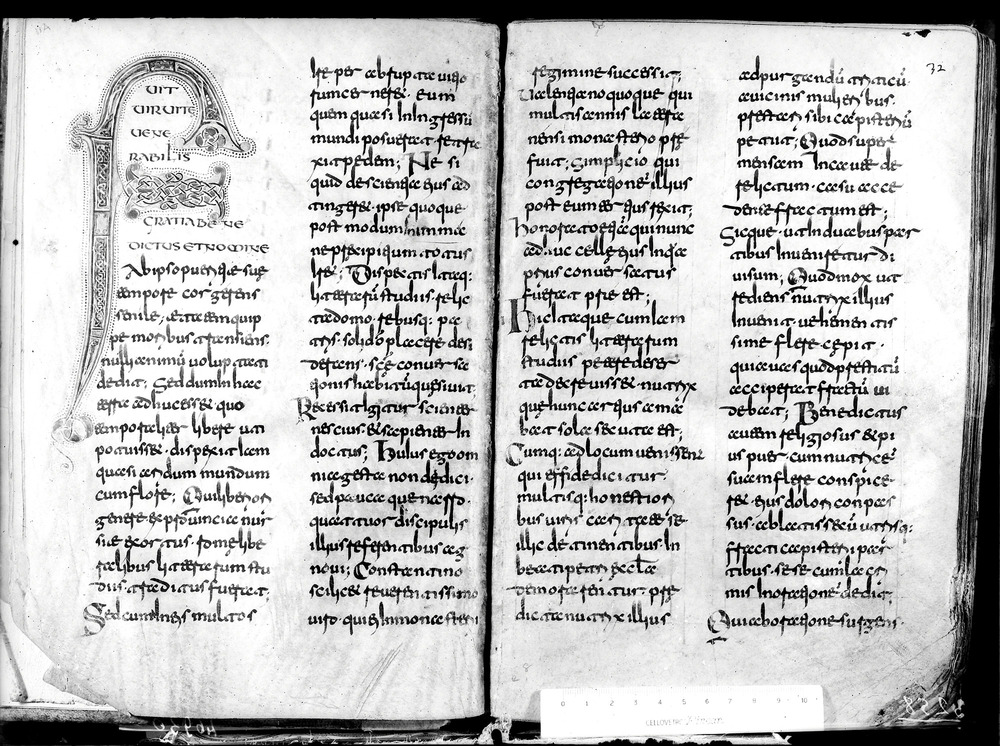 F
UIT
UIR UITE
UENE
RABILIS
GRATIA BENE
DICTUS ET NOMINE
Ab ipso pueritię suę
tempore cor gerens
senile, ętatem quip
pe moribus transiens.
nulli animū uoluptati
dedit; Sed dum in hac
terra adhuc esset quo
temporaliter libere uti
potuisset. dispexit iam
quasi aridum mundum
cum flore; Qui liberiori
genere ex prouincia nur
sie exortus. romę libe
ralibus litterarum stu
diis traditus fuerat;
Sed cum in eis multos
ire per abrupta uitio
rum cerneret. eum
quem quasi in ingressu
mundi posuerat retra
xit pedem; Ne si
quid de scientia eius ad
tingeret. ipse quoque
post modum in inma
ne precipitium totus
iret; Dispectis itaq:
litterarū studiis. relic
ta domo. rebusq: pa
tris. soli dō placere desi
derens. scē conuersa
tionis habitū quesiuit;
Recessit igitur scienter
nescius. et sapienter in
doctus; Huius ego om
nia gesta non dedici.
sed pauca que narro.
quattuor discipulis
illius referentibus ag
noui; Constantino
scilicet reuerentissimo
uiro. qui ei in monasterii
72
regimine successit;
Ualentiano quoque qui
multis annis latera
nensi monasterio prę
fuit; Simplicio qui
congregatione illius
post eum tertius rexit;
Honorato etiā qui nunc
adhuc celle eius in qua
prius conuersatus
fuerat pre est;
Hic itaque cum iam
relictis litterarum
studiis petere deser
ta decreuisset. nutrix
que hunc artius ama
bat sola secuta est;
Cumq: ad locum uenissent
qui effide dicitur.
multisq: honestiori
bus uiris caritate se
illic detinentibus. In
beati petri ęccla
demorarentur. prę
dicta nutrix illius
ad purgandū triticū
a uicinis mulieribus.
prestari sibi capisteriū
petiit; Quod super
mensam incaute de
relictum. casu acce
dente fractum est;
Sicque ut in duabus par
tibus inueniretur di
uisum; Quod mox ut
rediens nutrix illius
inuenit. uehementis
sime flere cępit.
quia uas quod prestitū
acceperat fractū ui
debat; Benedictus
autem religiosus et pi
us puer. cum nutricē
suam flere conspice
ret. eius dolori conpas
sus. ablatis secū utrisq:
fracti capisterii par
tibus. sese cum lacri
mis in oratione dedit;
Qui ab oratione surgens.
0 1 2 3 4 5 6 7 8 9 10